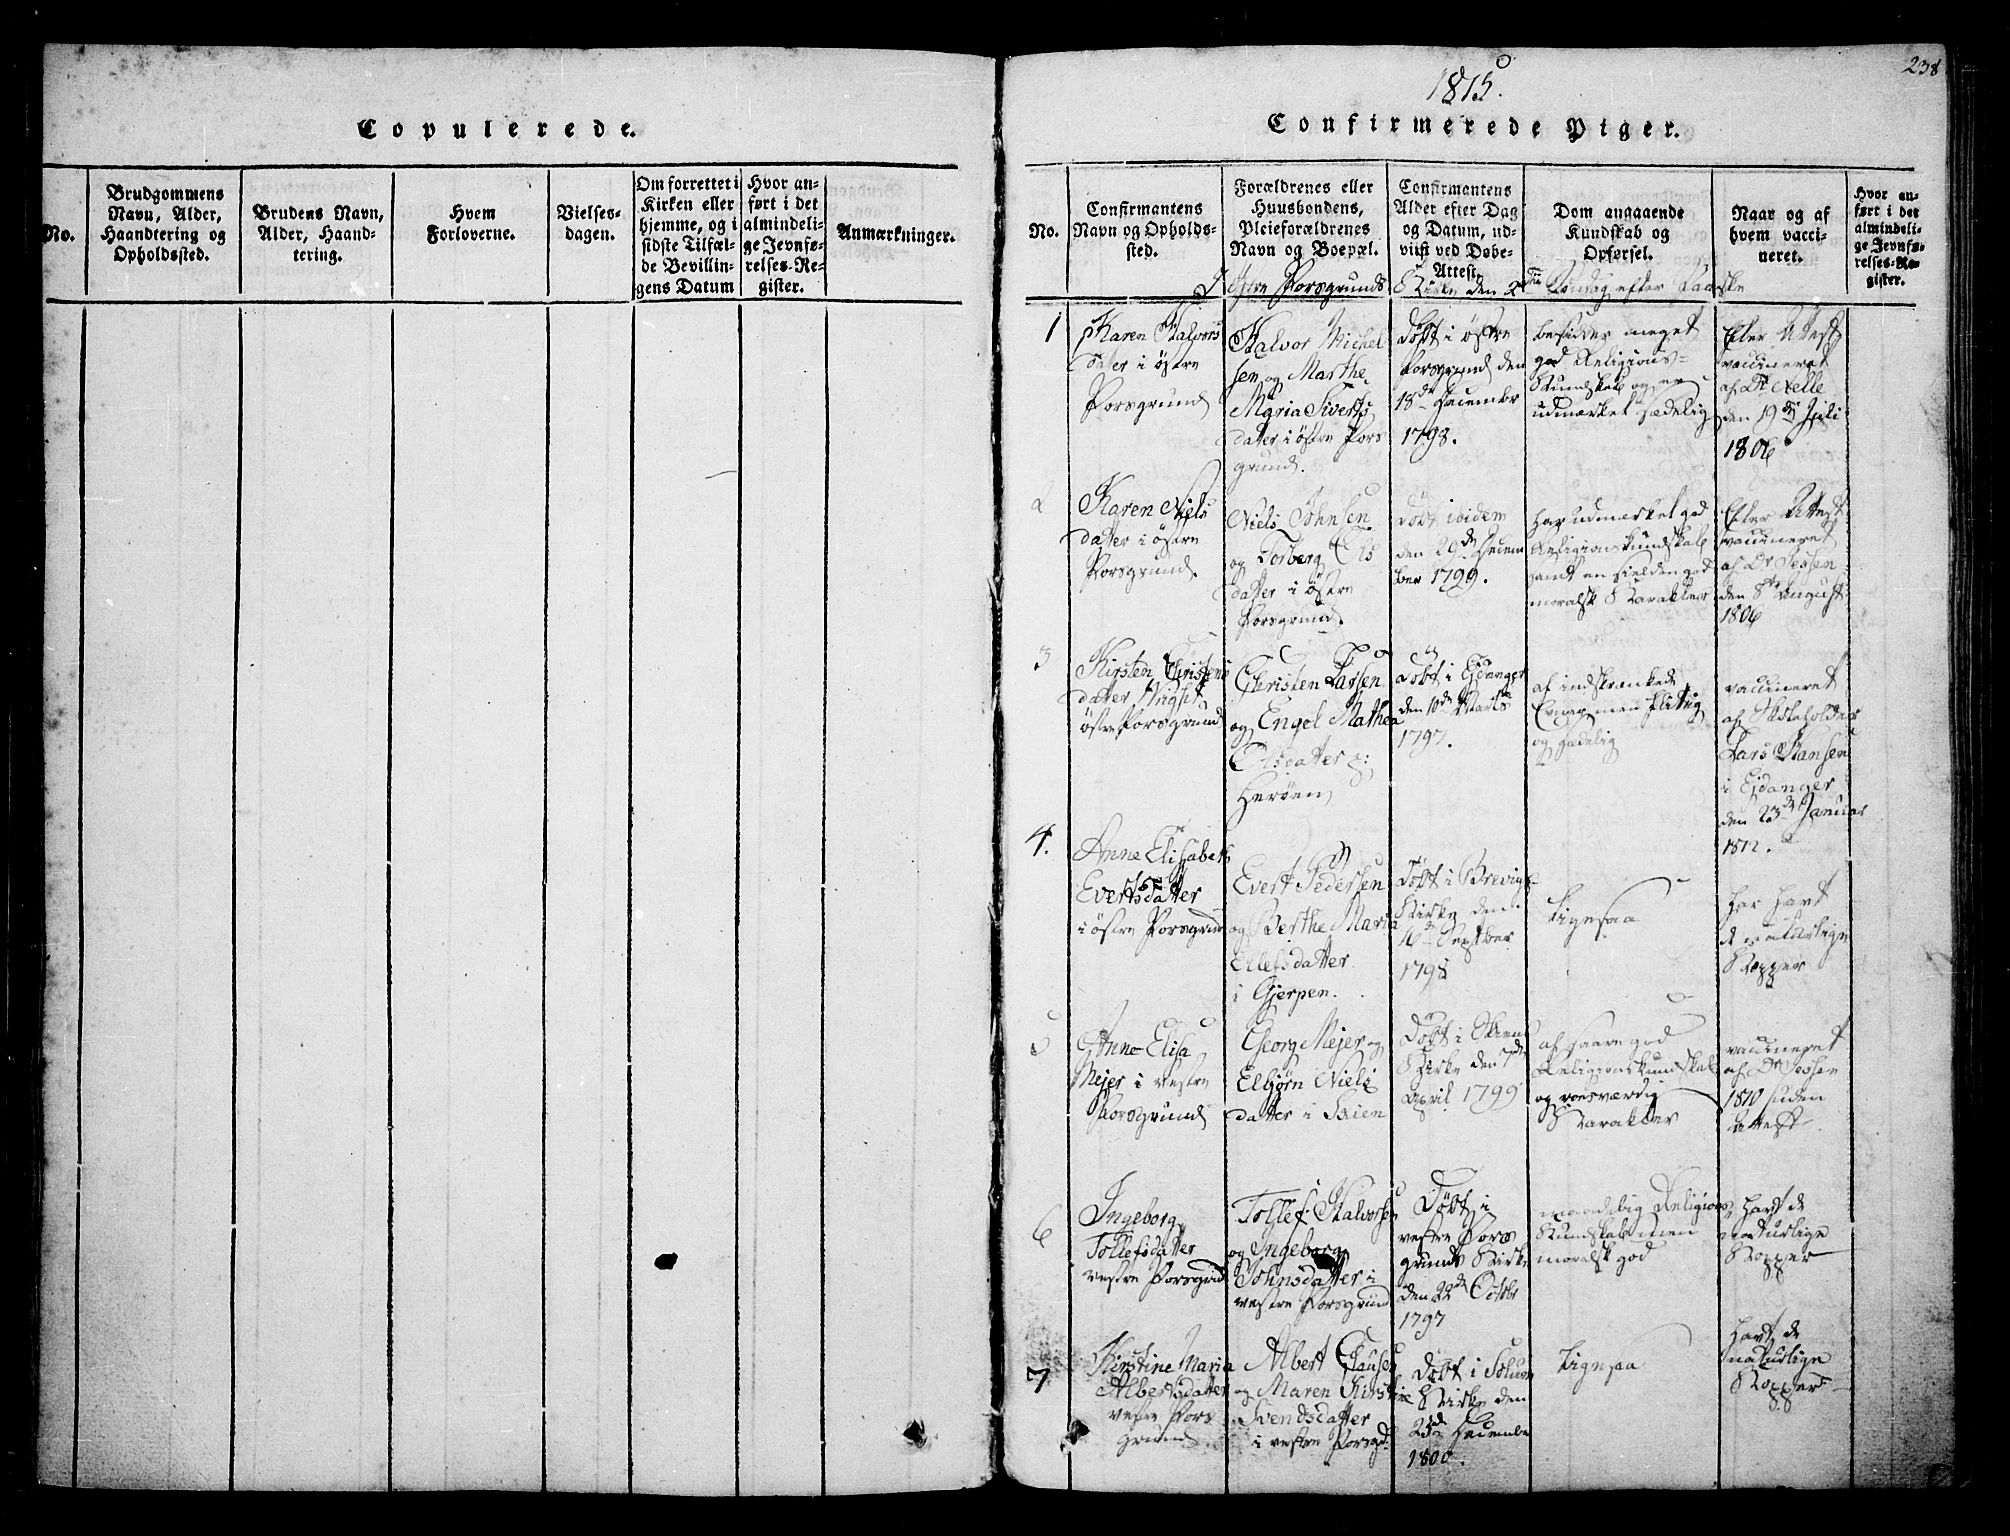 Copulerede.
No.
Brudgommens
Navn, Alder,
Haandtering og
Opholdssted.
Brudens Navn,
Alder, Haand-
tering.
Hvem
Forloverne.
Vielses-
dagen.
Om forrettet i
Kirken eller
hjemme, og i
sidste Tilfæl-
de Bevillin-
gens Datum
Hvor an-
ført i det
almindeli-
ge Jevnfø-
relses-Re-
gister.
Anmærkninger.
238
1815.
Confirmerede Piger.
No.
Confirmantens
Navn og Opholds-
sted.
Forældrenes eller
Huusbondens,
Pleieforældrenes
Navn og Boepæl.
Confirmantens
Alder efter Dag
og Datum, ud-
viist ved Døbe-
Attest.
Dom angaaende
Kundskab og
Opførsel.
Naar og af
hvem vacci-
neret.
Hvor an-
ført i det
almindeli-
ge Jevnfø-
relses-Re-
gister.
I østre Porsgrunds Kirke den 2den Søndag efter Paaske
1
Karen Halvors
datter i østre
Porsgrund
Halvor Michel
sen og Marthe
Maria Siverts
datter i østre Pors
grund.
Døbt i østre
Porsgrund den
18de Decembr
1798.
besidder meget
god Religions-
Kundskab og er
udmærket sædelig
Efter Attest
vaccineret
af Dr
den 19de Juli
1806
2
Karen Niels
datter i østre
Porsgrund.
Niels Johnsen
og Torberg Els
datter i østre
Porsgrund.
Døbt ibidem
den 29de Decem
ber 1799.
har udmærket god
Religionskundskab
samt en sielden god
moralsk Karakteer
Efter Attest
vaccineret
af Dr Jessen
den 8de August
1806
3
Kirsten Christens
datter
østre Porsgrund
Christen Larsen
og Engel Mathea
Elsdatter p:
Herøen
Døbt i Ejdanger
den 10de Marts
1797.
af indskrænkede
Evner men flittig
og sædelig
vaccineret
af Skoleholder
Lars Hansen
i Ejdanger
den 23de Januar
1812.
4.
Anne Elisabeth
Evertsdatter
i østre Porsgrund
Evert Pedersen
og Berthe Maria
Ellefsdatter
i Gjerpen.
Døbt i Brevigs
Kirke den
16de Septber
1798
Ligesaa
har havt
de naturlige
Kopper
5
Anne Elisa
Mejer i vestre
Porsgrund
Georg Mejer og
Elbjørn Niels
datter i Skien
Døbt i Skiens
Kirke den 7de
April 1799
af saare god
Religionskundskab
og roesværdig
Karakteer
vaccineret
af Dr Jessen
1810 siden
Attest
6
Ingeborg
Tollefsdatter
vestre Porsgrund
Tollef Halvorsen
og Ingeborg
Johnsdatter i
vestre Porsgrund
Døbt i
vestre Pors
grunds Kirke
den 22de Octobr
1797
maadelig Religions
Kundskab men
moralsk god
havt de
naturlige
Kopper
7
Kirstine Maria
Albertsdatter
vestre Pors
grund
Albert Clausen
og Maren Kirstine
Svendsdatter
i vestre Porsgd.
Døbt i Solum
Kirke den
23de Decembr
1800.
Ligesaa
havt de
naturlige
Kopper